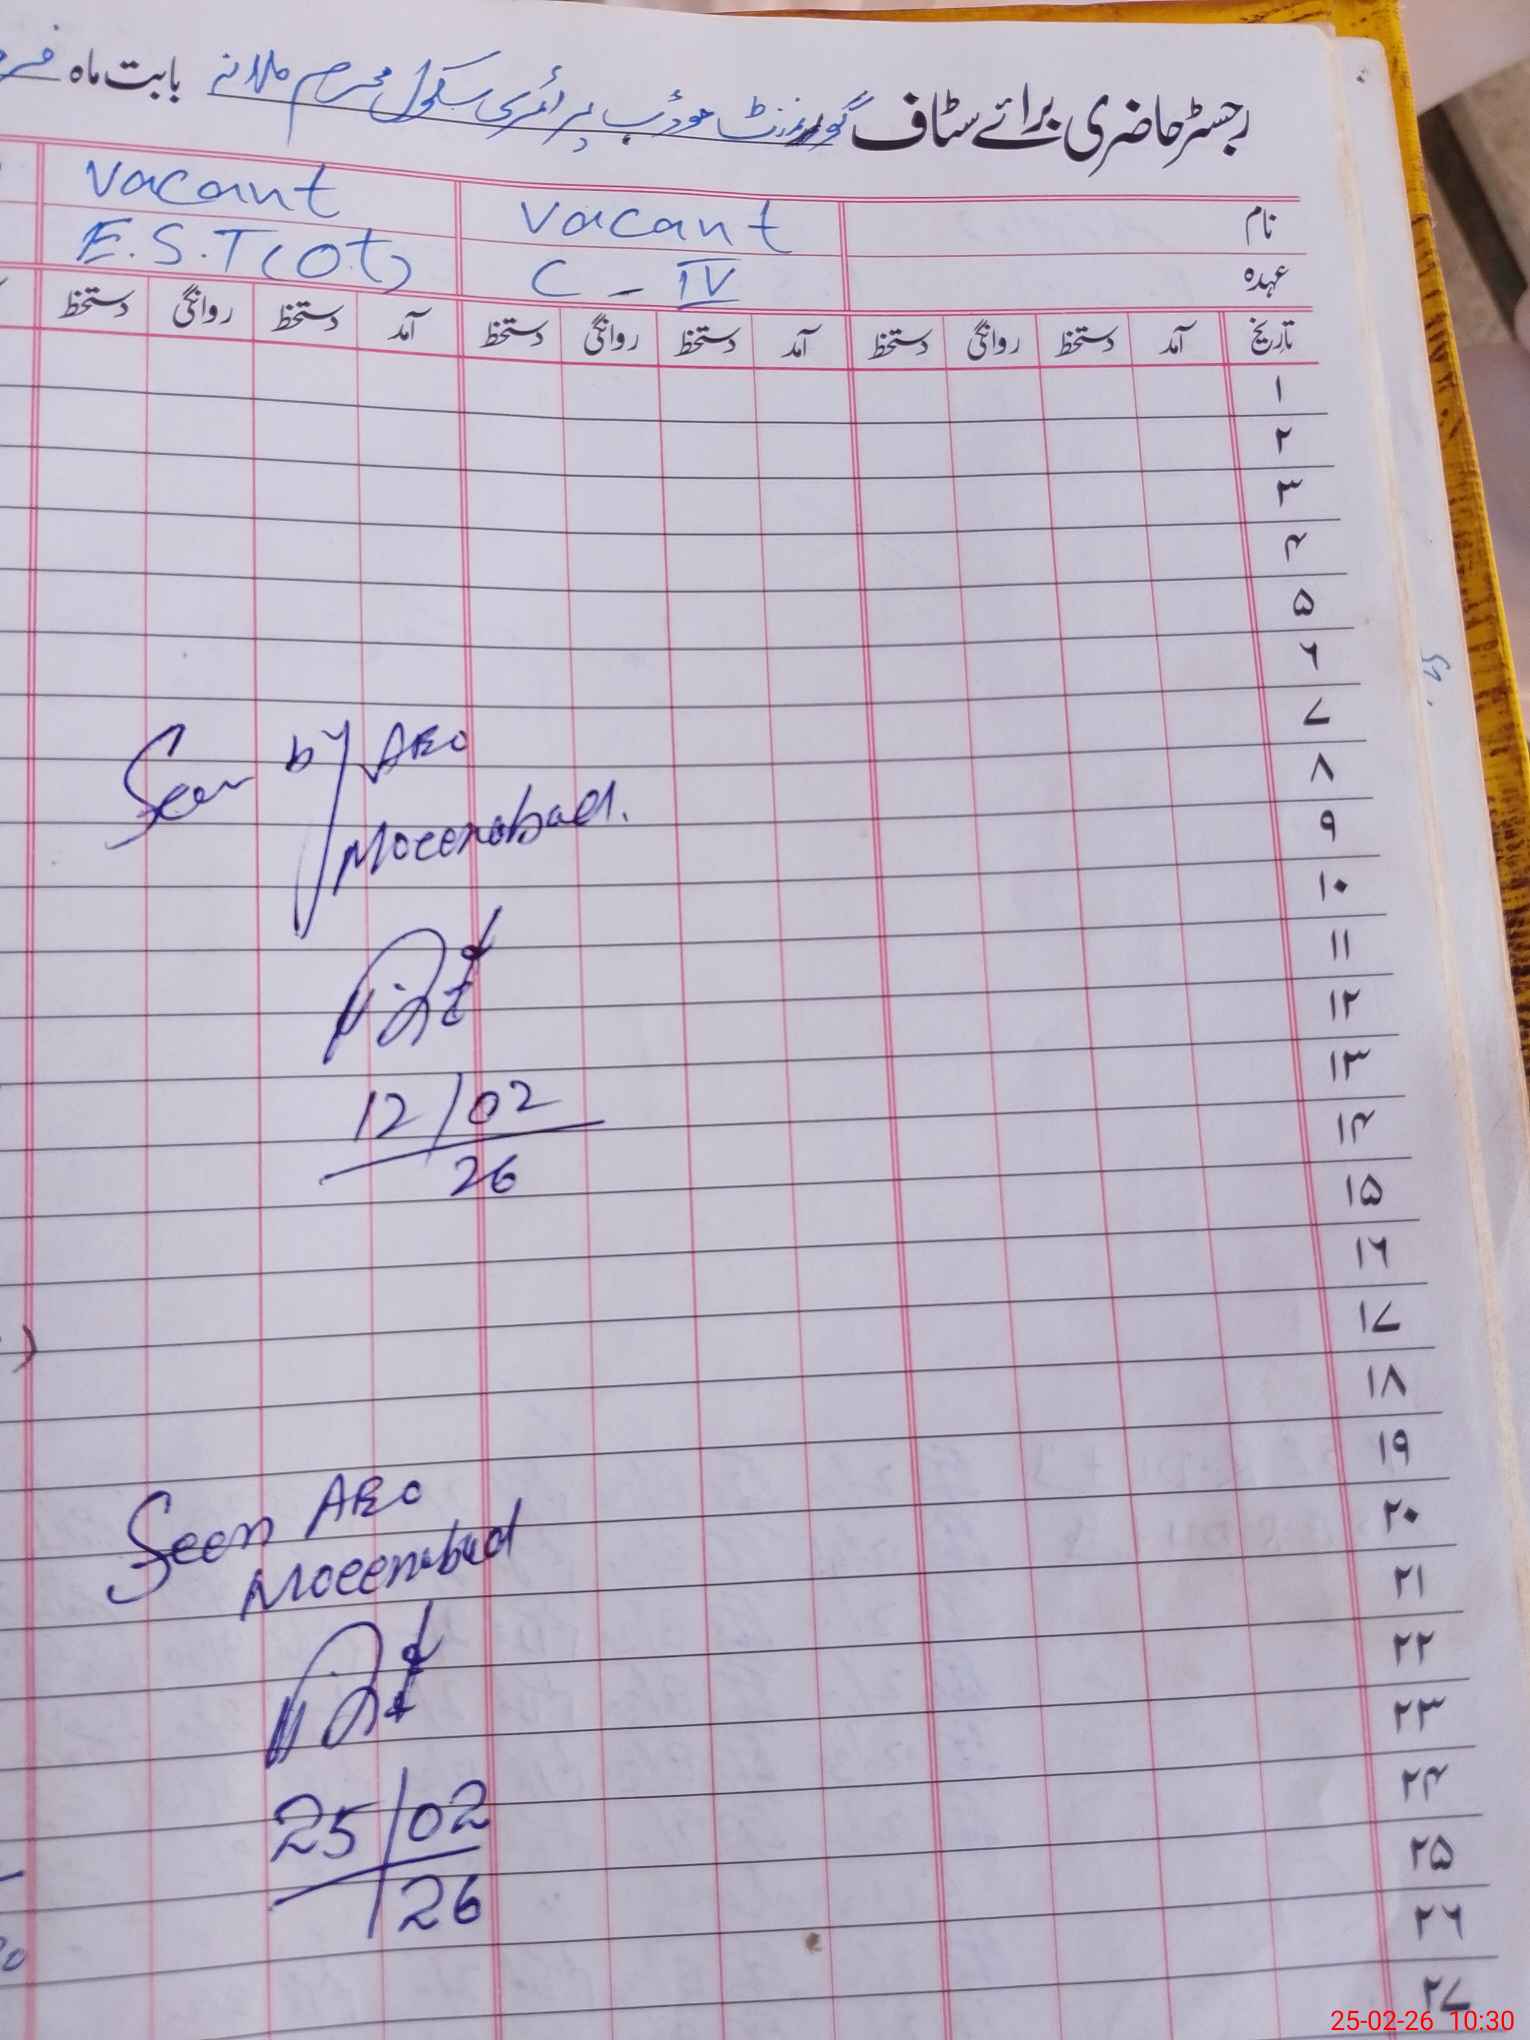 رجسٹر حاضری برائے سٹاف گورنمنٹ موڈب پرائمری سکول محرم ملانہ بابت ماہ
نام vacant vacant
عہدہ C - IV E.S.T(ot)
تاریخ آمد دستخط روانگی دستخط آمد دستخط روانگی دستخط آمد دستخط روانگی دستخط
۱
۲
۳
۴
۵
۶
۷
Seen by AEO
۸
Moeenabad.
۹
۱۰
۱۱
۱۲
۱۳
12/02
26
۱۴
۱۵
۱۶
۱۷
۱۸
۱۹
Seen AEO
۲۰
Moeenabad
۲۱
۲۲
۲۳
۲۴
25/02
۲۵
26
۲۶
۲۷
25-02-26 10:30